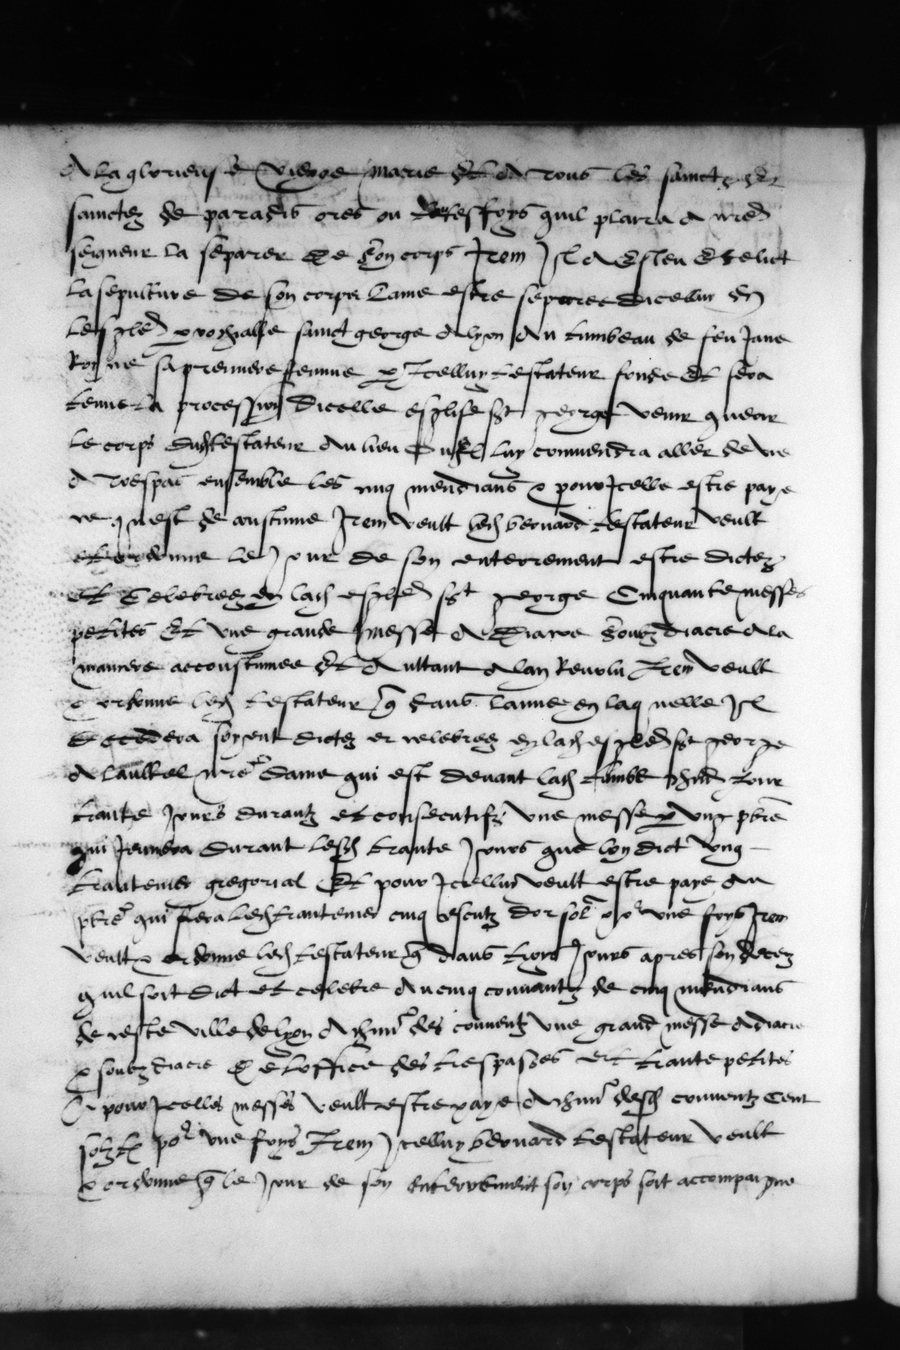 A la glorieuse vierge marie et A tous les sainctz et
sainctes de paradis ores ou toutesfoys quil plaira a nre
seigneur la separer de son corps Item Il A Esleu Et elict
La sepulture de son corps Lame estre separee dicelluy En
Lesglise parrochialle sainct george A lyon Au tumbeau de feu Jane
sa premiere femme Icelluy testateur fonde Et sera
tenue la procession dicelle esglise sct george venir querir
Le corps dudt testateur Au lieu luy conviendra aller de vie
A trespas ensemble les cinq mendians & pour Icelle estre paye
ce quest de coustume Item veult led bernard testateur veult
et ordonne le Jour de son enterrement estre dictes
et Celebrees en lad esglise sct george Cinquante messes
petites Et une grande messe A Diacre soubzdiacre A la
maniere accoustumee Et Aultant A lan Revolu Item veult
& ordonne led testateur q dans lannee en laquelle Il
decedera soyent dictes et celebrees en lad esglise sct george
A laultel nre dame qui est devant lad tumbe Jour
trante Jours durantz et consecutifz une messe p ung pbre
qui durant lesd trante Jours que lon dict ung
trantenier gregorial Et pour Icelluy veult estre paye Au
pbre qui fera led trantenier cinq escutz dor sol po une foys Item
veult & ordonne led testateur q dans troys Jours apres son deces
quil soit dict et celebre Au cinq couventz de cinq mendians
de ceste ville de lyon A chun des couventz une grand messe A diacre
& soubzdiacre Et Loffice des trespasses et trante petites
Et pour Icelles messes veult estre paye A chun desd couventz Cent
solz tz po une foys Item Icelluy bernard testateur veult
& ordonne q le Jour de son enterrement son corps soit accompaigne